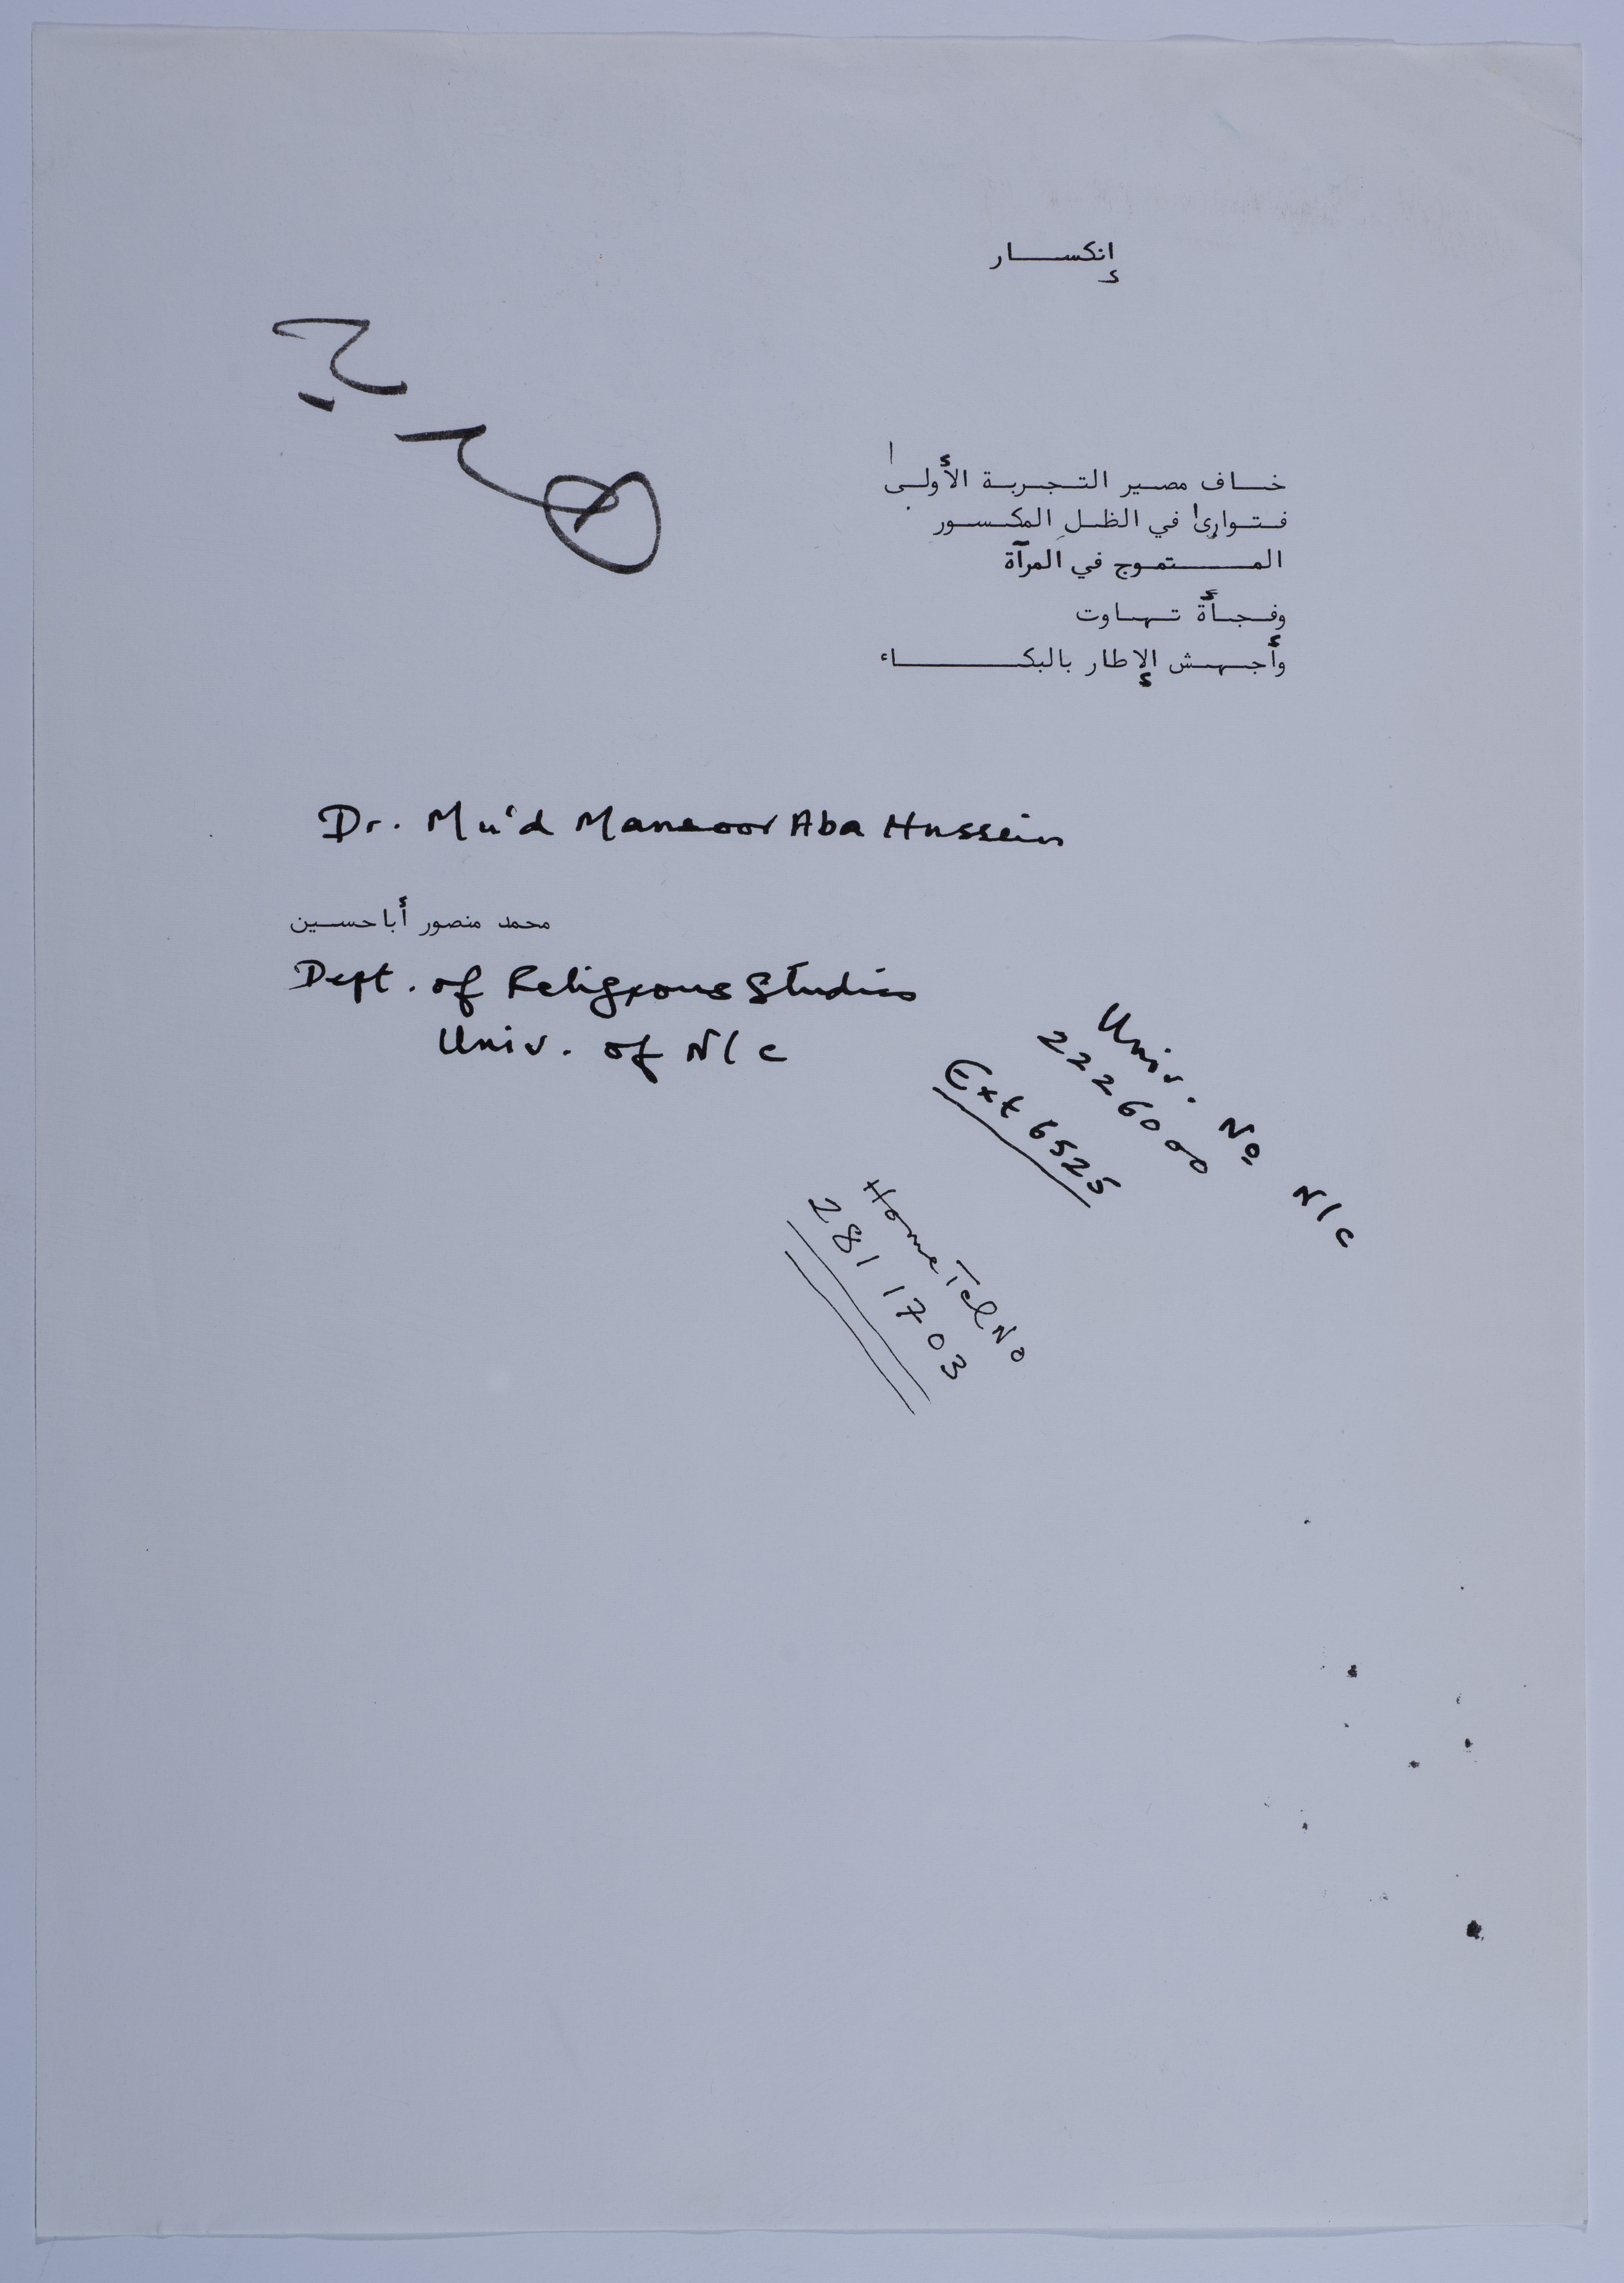 إنكسار
خاف مصير التجربة الأولى
فتوارى في الظل المكسور
المتموج في المرآة
وفجأة تهاوت
وأجهش الإطار بالبكاء
Dr. Mu'd Mansoor Aba Hussein
محمد منصور أباحسين
Dept. of Religious Studies
Univ. of N/c
Univ. No N/c
2226000
Ext 6525
Home Tel No
281 1703